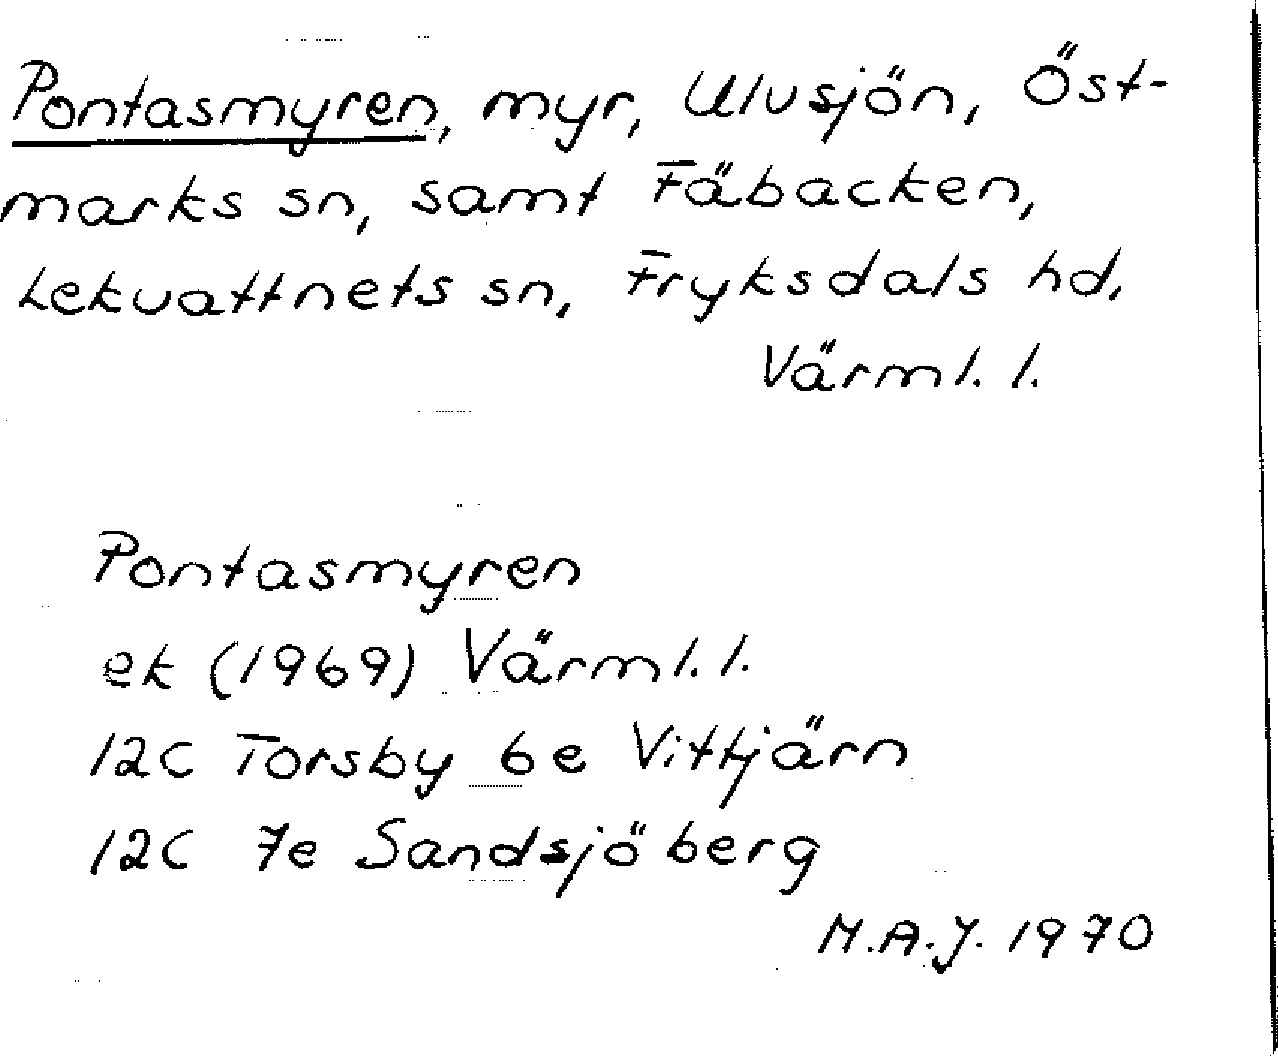 Pontasmyren, myr, Ulvsjön, Öst-
marks sn, samt Fäbacken,
Lekvattnets sn, Fryksdals hd,
Värml. l.
Pontasmyren
ek (1969) Värml. l.
12C Torsby 6e Vittjärn
12C 7e Sandsjöberg
M.A.J. 1970